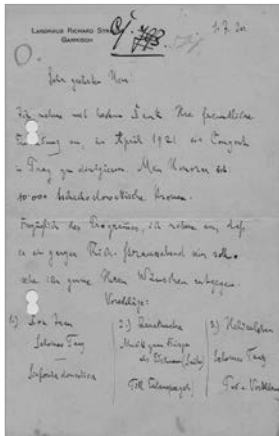 LANDHAUS RICHARD STR
GARMISCH
1. 7. 20.
Sehr geehrter Herr!
Ich nehme mit bestem Dank Ihre freundliche
an, im April 1921 ein Concert
in Prag zu dirigieren. Mein Honorar ist:
10.000 tschechoslovakische Kronen.
Bezüglich des Programmes, ich nehme an, daß
es ein ganzer Rich. Straussabend sein soll,
sehe ich gerne Ihren Wünschen entgegen.
Vorschläge:
1.) Don Juan
Salomes Tanz
Sinfonia domestica
2.) Zarathustra
Musik zum Bürger
als Edelmann (Suite)
Till Eulenspiegel
3) Heldenleben
Salomes Tanz
Tod u. Verklärung